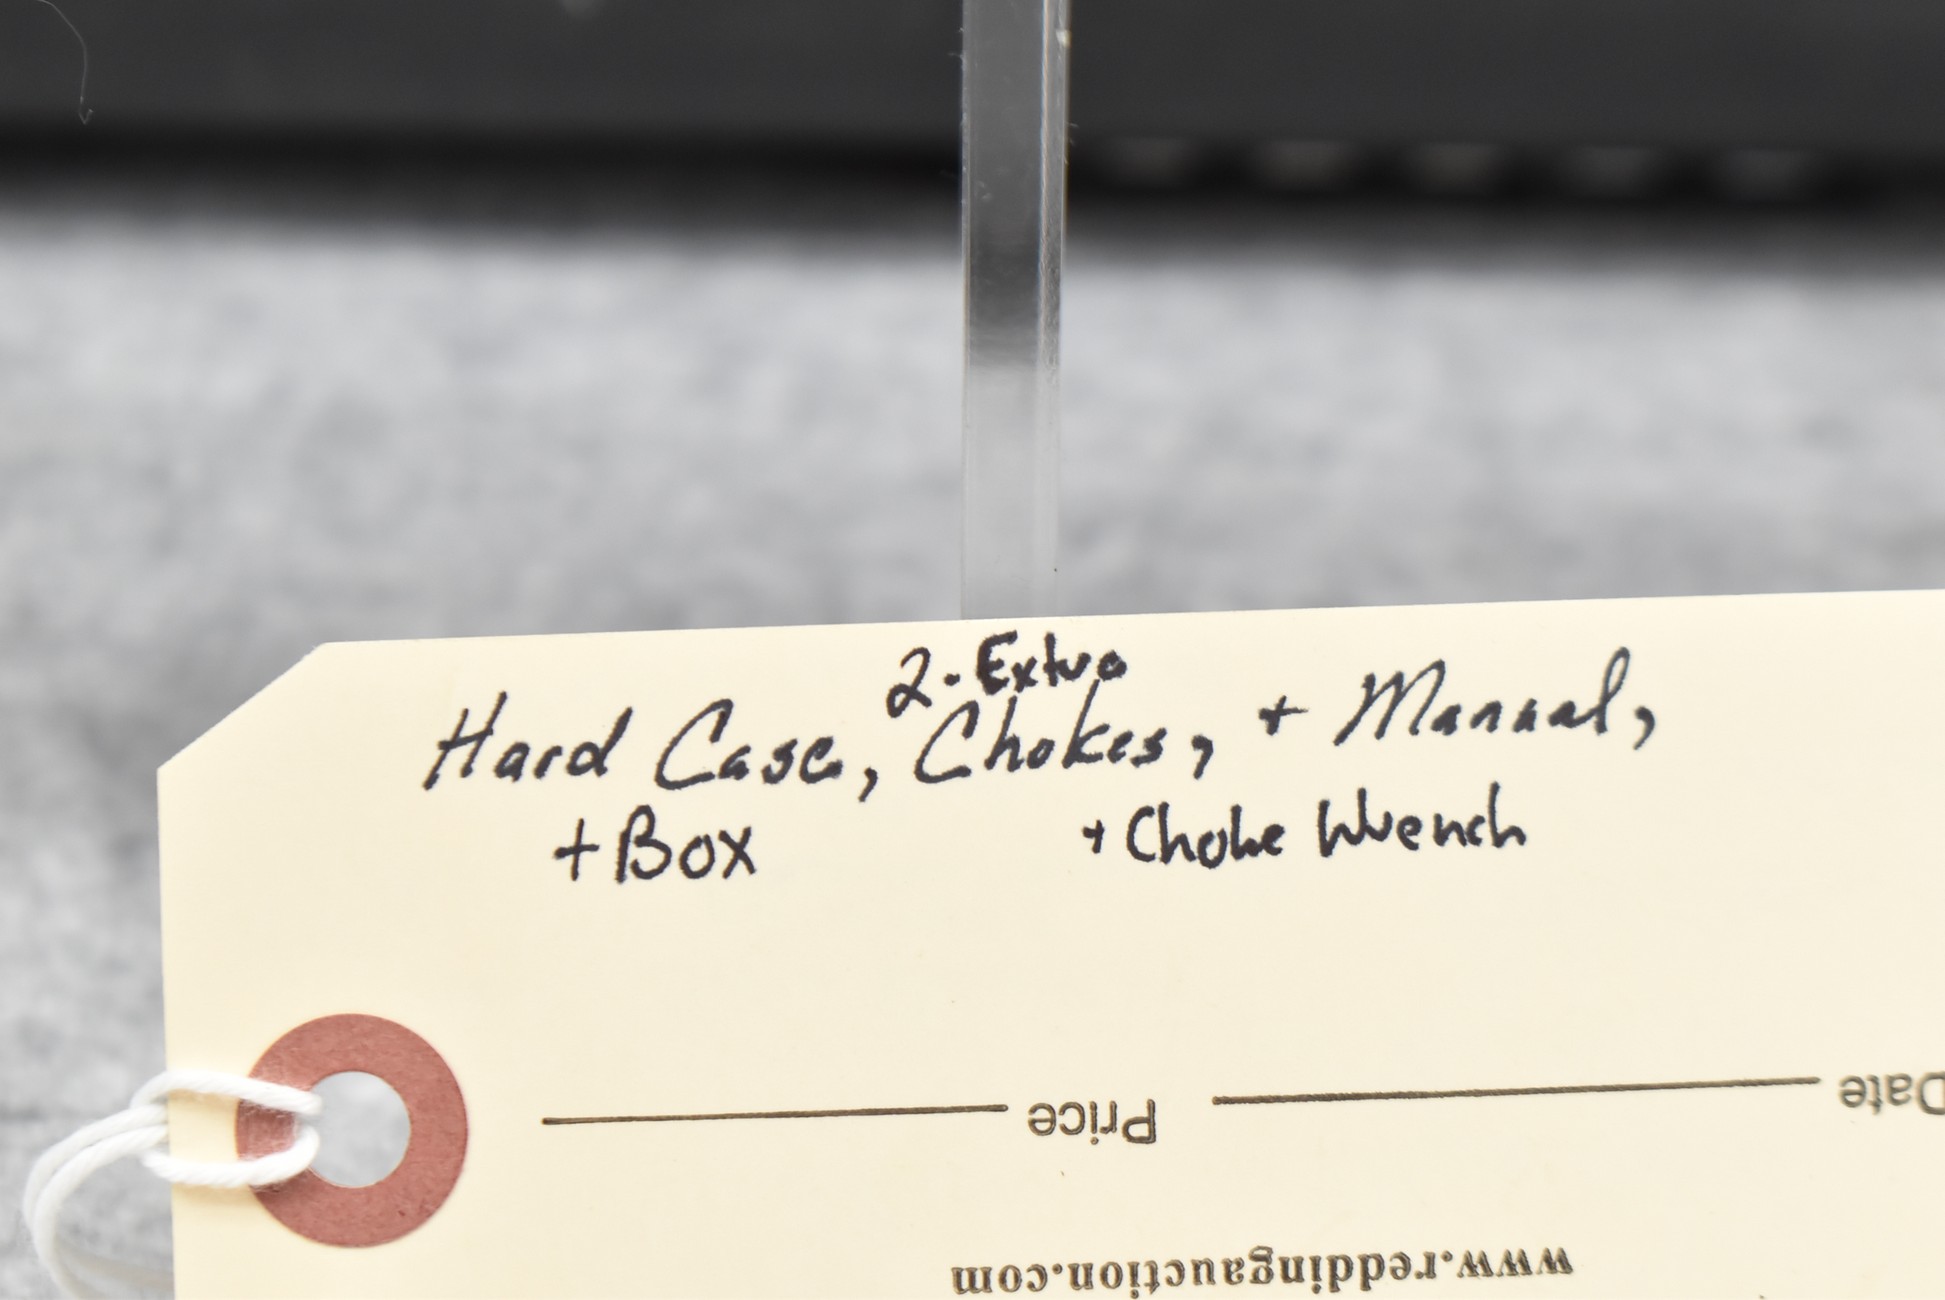 2-Extra
Hard Case, Chokes, + Manual,
+ Box + Choke Wrench
Price Date
www.reddingauction.com